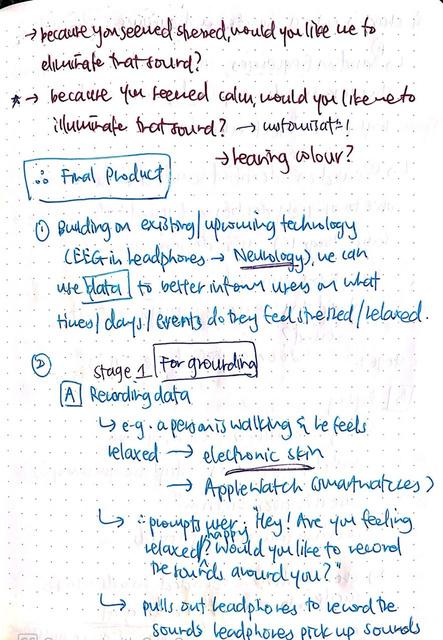 → because you seemed stressed, would you like me to
eliminate that sound?
★→ because you seemed calm, would you like me to
illuminate that sound? →
→ hearing colour?
∴ Final Product
① Building on existing/upcoming technology
(EEG in headphones → Neurology), we can
use data to better inform users on what
times/days/events do they feel stressed/relaxed.
② stage 1 For grounding
A Recording data
↳ e.g. a person is walking & he feels
relaxed → electronic skin
→ Apple Watch (smartwatches)
↳ ∴ prompts user: "Hey! Are you feeling
relaxed/happy? Would you like to record
the sounds around you?"
↳ pulls out headphones to record the
sounds headphones pick up sounds